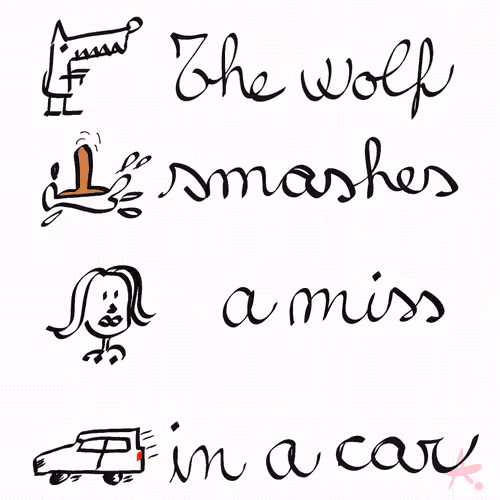 The wolf
smashes
a miss
in a car